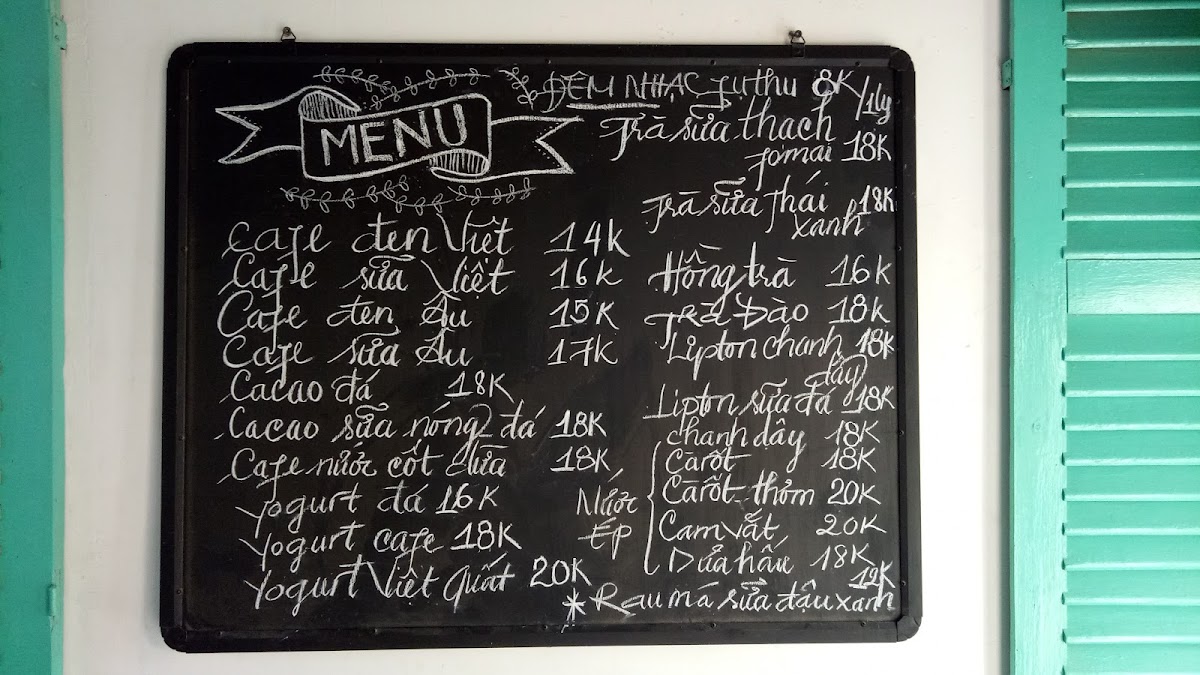 MENU
Cafe đen Việt 14K
Cafe sữa Việt 16K
Cafe đen Âu 15K
Cafe sữa Âu 17K
Cacao đá 18K
Cacao sữa nóng đá 18K
Cafe nước cốt dừa 18K
Yogurt đá 16K
Yogurt cafe 18K
Yogurt Việt Quất 20K
ĐÊM NHẠC phụ thu 8K/1ly
Trà sữa thạch
fomai 18K
Trà sữa Thái 18K
xanh
Hồng trà 16K
Trà Đào 18K
Lipton chanh 18K
dây
Lipton sữa đá 18K
chanh dây 18K
Nước
Ép
Carốt 18K
Carốt thơm 20K
Cam vắt 20K
Dưa hấu 18K
12K
* Rau má sữa đậu xanh